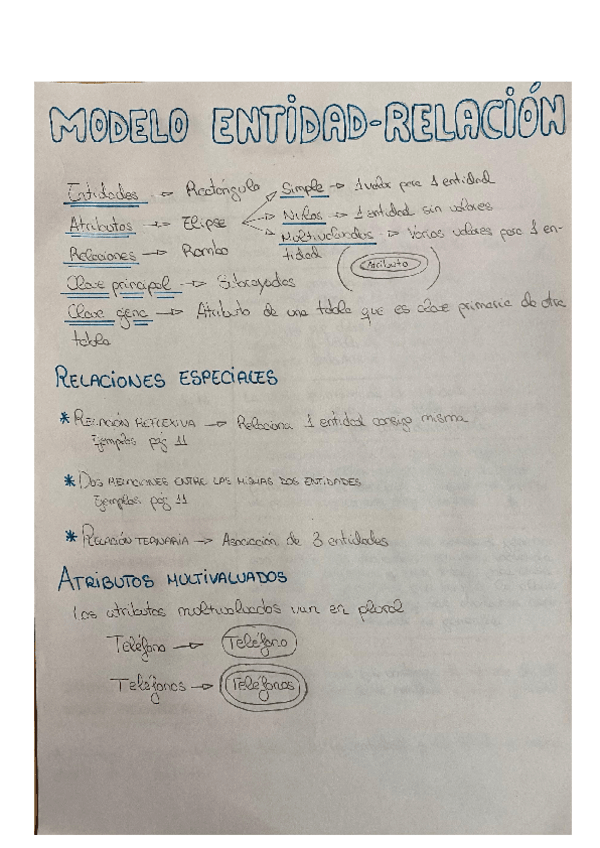 MODELO ENTIDAD-RELACIÓN
Entidades → Rectángulo
Simple → 1 valor para 1 entidad
Atributos → Elipse
Nulos → 1 entidad sin valores
Multivaluados → Varios valores para 1 en-
tidad
(Atributo)
Relaciones → Rombo
Clave principal → Subrayados
Clave ajena → Atributo de una tabla que es clave primaria de otra
tabla
RELACIONES ESPECIALES
* RELACIÓN REFLEXIVA → Relaciona 1 entidad consigo misma
Ejemplos pág 11
* DOS RELACIONES ENTRE LAS MISMAS DOS ENTIDADES
Ejemplos: pág 11
* RELACIÓN TERNARIA → Asociación de 3 entidades
ATRIBUTOS MULTIVALUADOS
Los atributos multivaluados van en plural
Teléfono → Teléfono
Teléfonos → Teléfonos